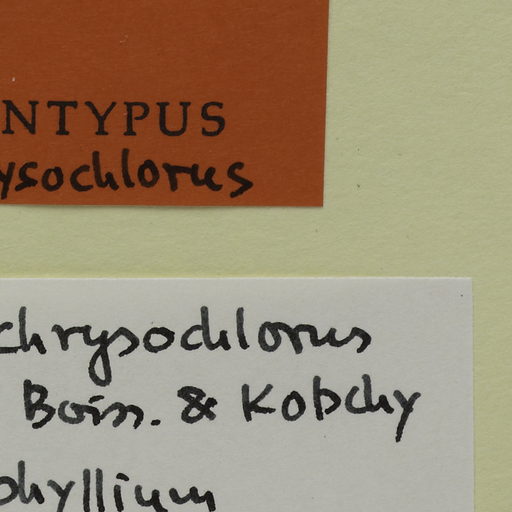 NTYPUS
ysochlorus
chrysochlorus
Boiss. & Kotschy
phyllium